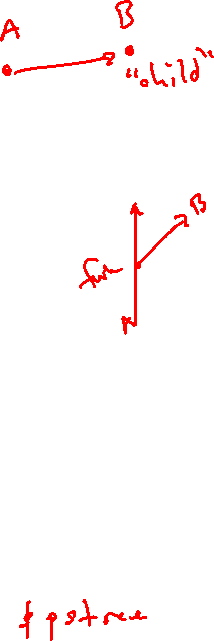 A B
"child"
B
fork
A
$ pstree